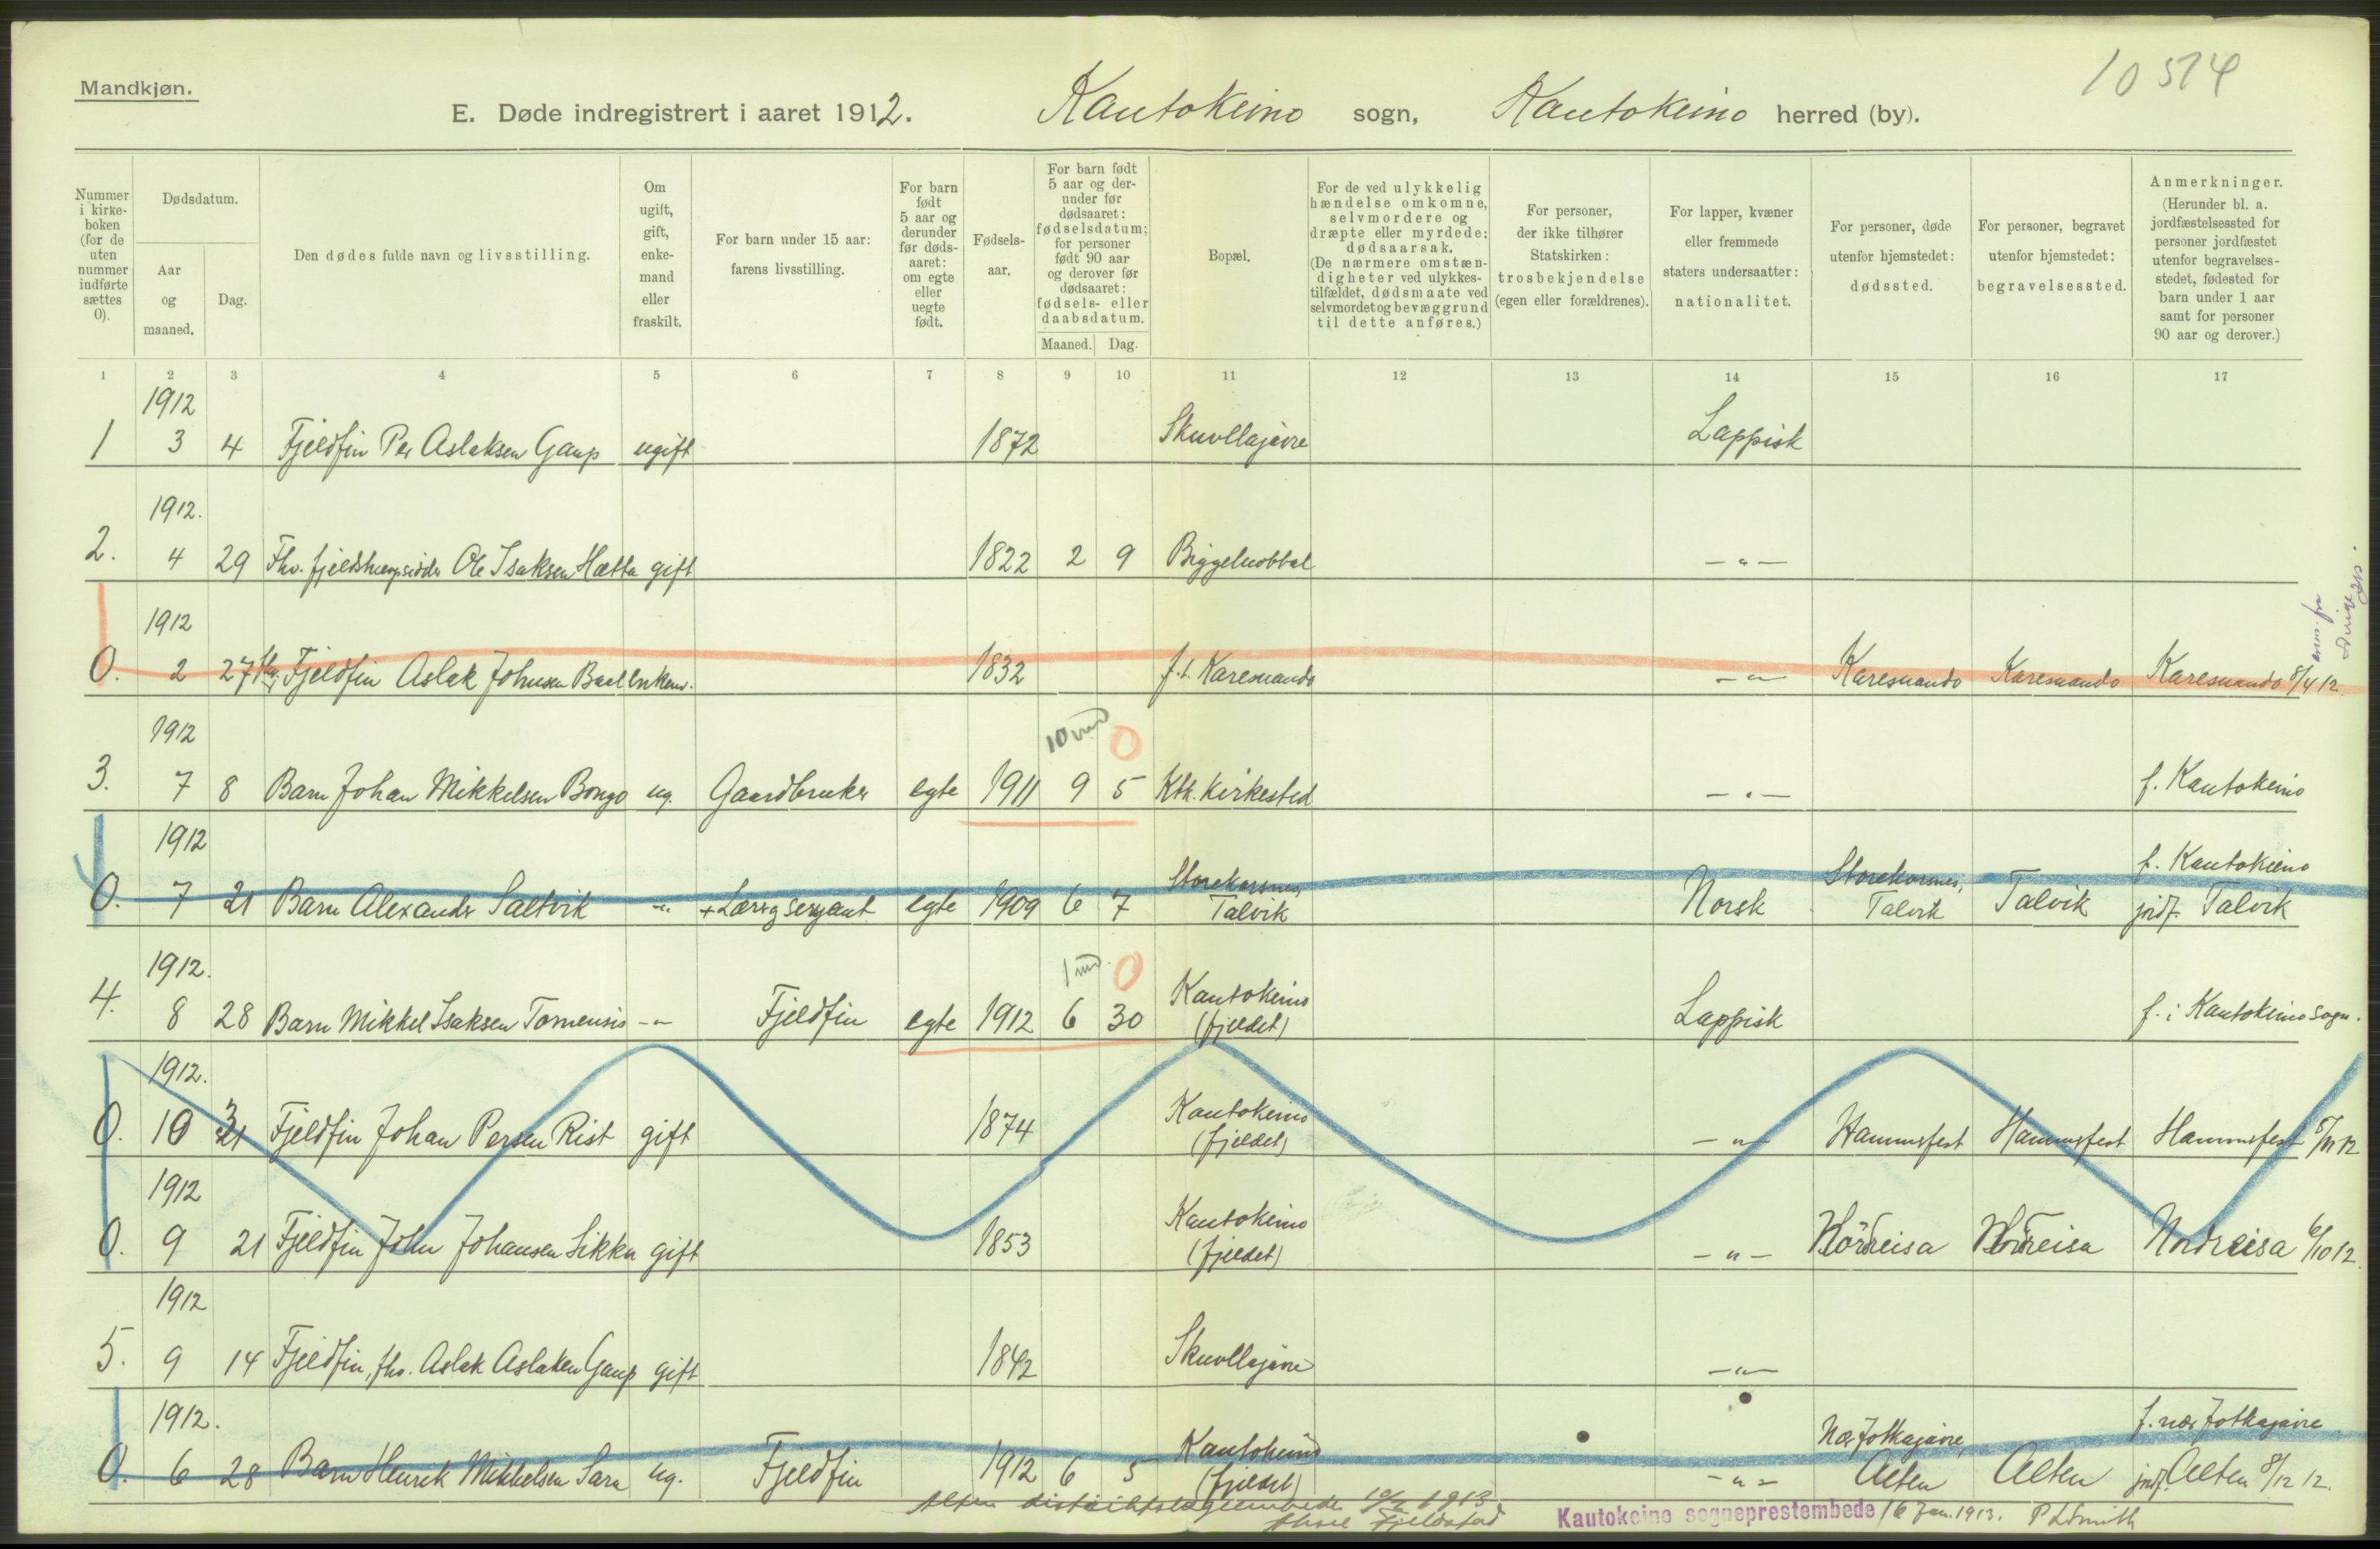 10 574
Mandkjøn.
E. Døde indregistrert i aaret 1912. Kautokeino sogn, Kautokeino herred (by).
Nummer i kirke-boken (for de uten nummer indførte sættes 0).
Dødsdatum.
Aar og maaned.
Dag.
Den dødes fulde navn og livsstilling.
Om ugift, gift, enke-mand eller fraskilt.
For barn under 15 aar: farens livsstilling.
For barn født 5 aar og derunder før døds-aaret: om egte eller uegte født.
Fødsels-aar.
For barn født 5 aar og der-under før dødsaaret: fødselsdatum; for personer født 90 aar og derover før dødsaaret: fødsels- eller daabsdatum.
Maaned. Dag.
Bopæl.
For de ved ulykkelig hændelse omkomne, selvmordere og dræpte eller myrdede: dødsaarsak. (De nærmere omstæn-digheter ved ulykkes-tilfældet, dødsmaate ved selvmordet og bevæggrund til dette anføres.)
For personer, der ikke tilhører Statskirken: trosbekjendelse (egen eller forældrenes).
For lapper, kvæner eller fremmede staters undersaatter: nationalitet.
For personer, døde utenfor hjemstedet: dødssted.
For personer, begravet utenfor hjemstedet: begravelsessted.
Anmerkninger. (Herunder bl. a. jordfæstelsessted for personer jordfæstet utenfor begravelses-stedet, fødested for barn under 1 aar samt for personer 90 aar og derover.)
1 2 3 4 5 6 7 8 9 10 11 12 13 14 15 16 17
1912
1 3 4 Fjeldfin Per Aslaksen Gaup ugift 1872 Skuollajavre Lappisk
1912.
2. 4 29 Fhv. Ole Isaksen Hætta gift 1822 2 9 Biggeluobbal -"-
1912
0. 2 27 Fjeldfin Aslak Johnsen enkem. 1832 f.t. Karesuando -"- Karesuando Karesuando Karesuando 8/4 12.
1912 10 md 0
3. 7 8 Barn Johan Mikkelsen Bongo ug. Gaardbruker egte 1911 9 5 Ktk. Kirkested -"- f. Kautokeino
1912 Storekorsnes, Storekorsnes, f. Kautokeino
0. 7 21 Barn Alexander Saltvik -"- + Lærer g sergeant egte 1909 6 7 Talvik Norsk Talvik Talvik jordf. Talvik
1912. 1 md. 0 Kautokeino
4. 8 28 Barn Mikkel Isaksen Tornensis -"- Fjeldfin egte 1912 6 30 (fjeldet) Lappisk f. i Kautokeino sogn.
1912. Kautokeino
0. 10 31 Fjeldfin Johan Persen Rist gift 1874 (fjeldet) -"- Hammerfest Hammerfest Hammerfest 5/11 12
1912 Kautokeino
0. 9 21 Fjeldfin John Johansen Sikku gift 1853 (fjeldet) -"- Nordreisa Nordreisa Nordreisa 6/10 12.
1912
5. 9 14 Fjeldfin, fhv. Aslak Aslaksen Gaup gift 1842 Skuollajavre -"-
1912. Kautokeino Nær Jotkajavre, f. nær Jotkajavre
0. 6 28 Barn Henrik Mikkelsen Sara ug. Fjeldfin 1912 6 5 (fjeldet) -"- Alten Alten jordf. Alten 8/12 12.
Alten distriktslægeembede 10/2 1913
Fjeldstad
Kautokeino sogneprestembede 16 Jan. 1913. P L Smith